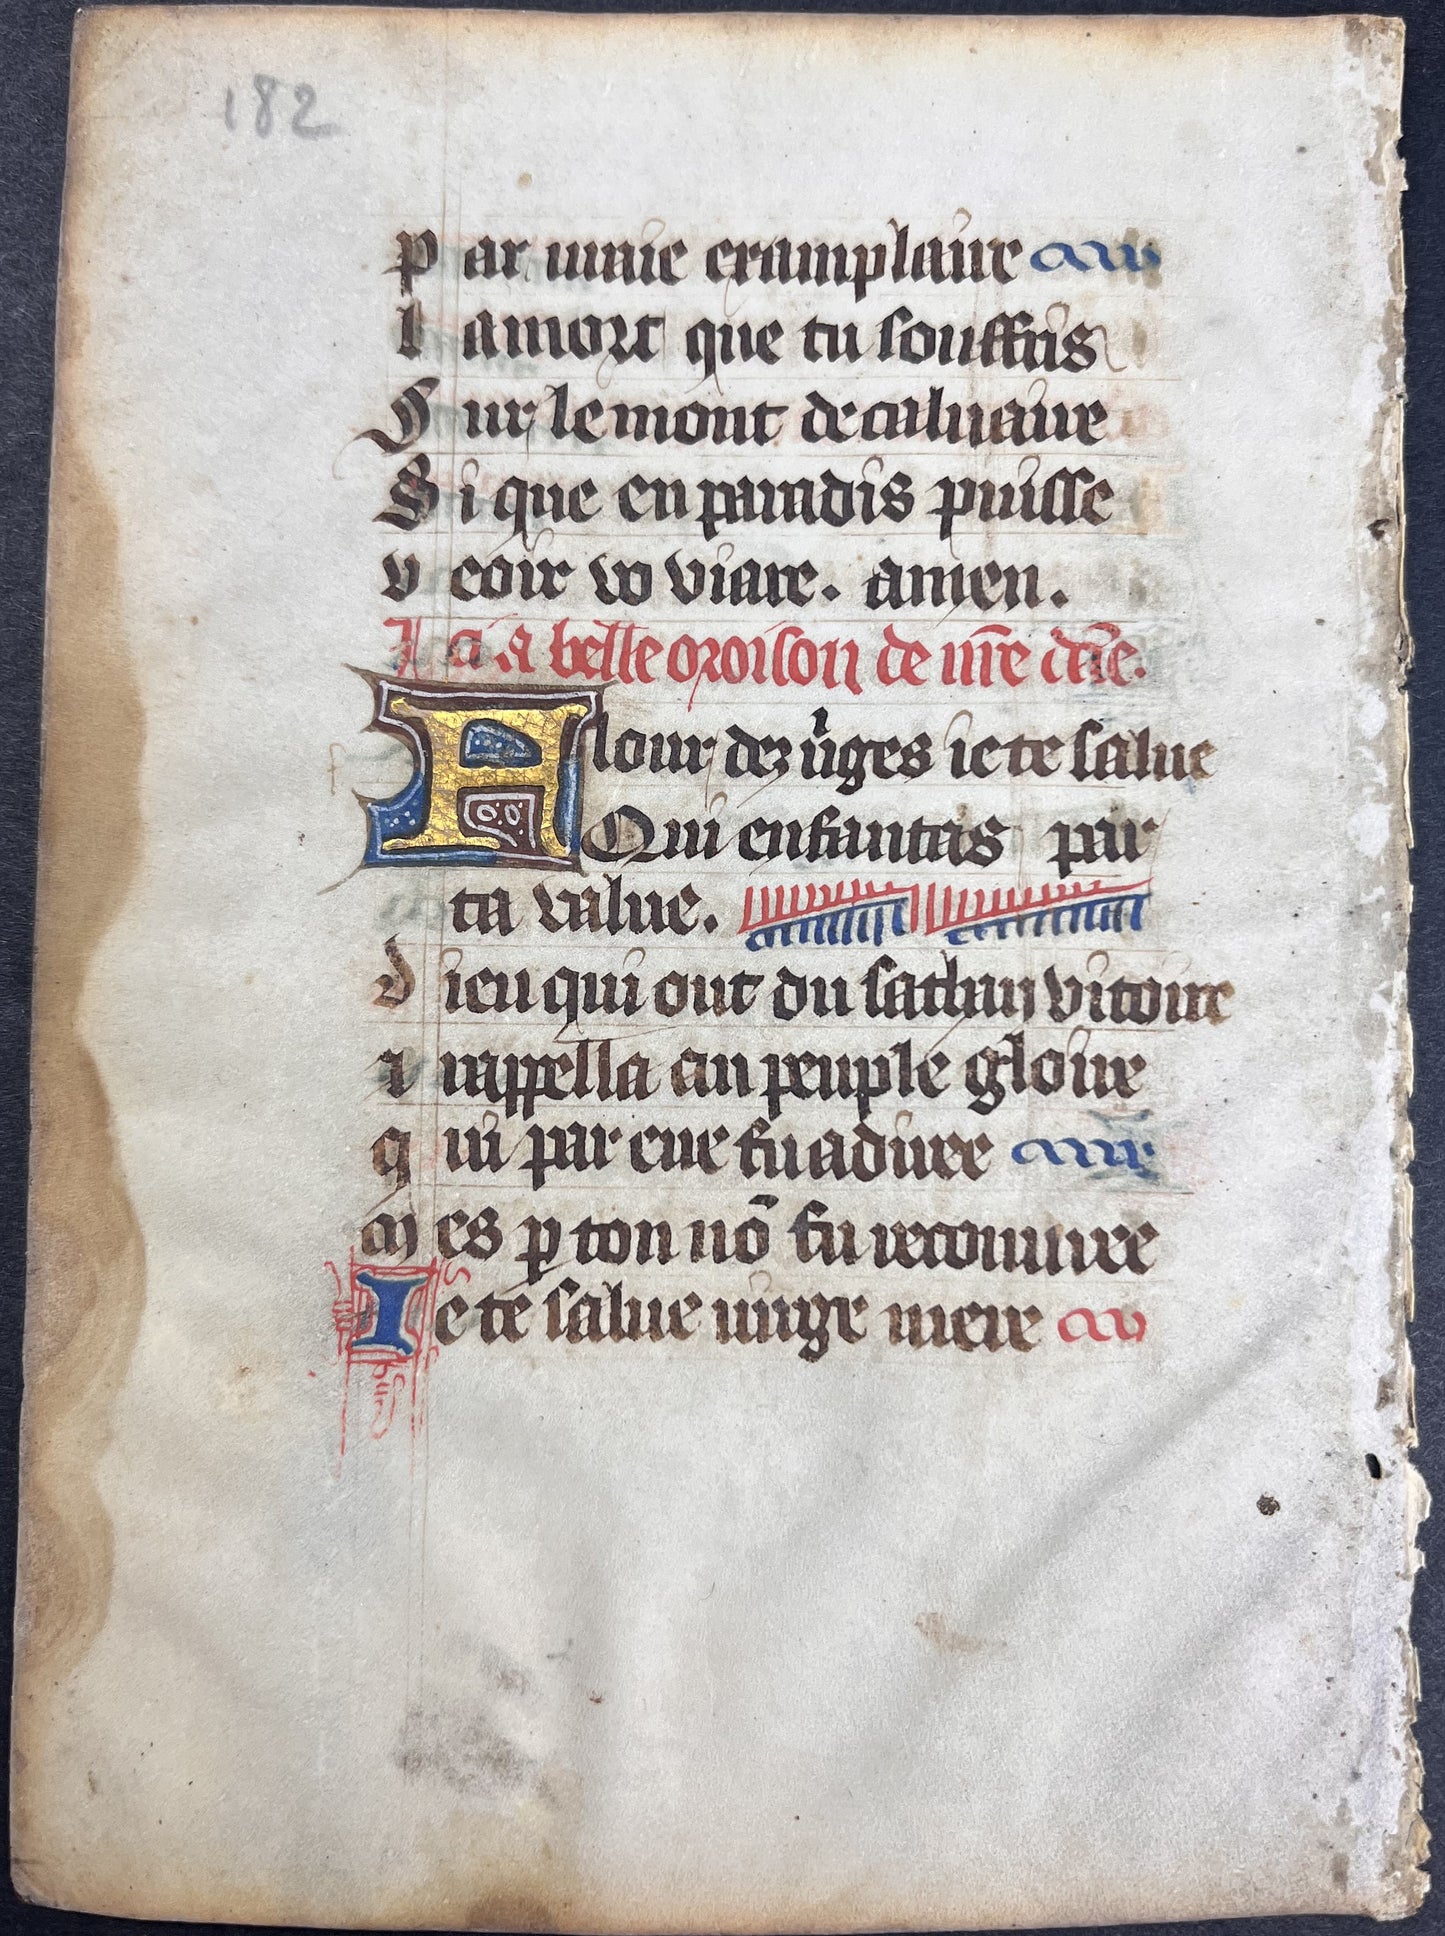 182
Par vraie examplaire
La mort que tu souffris
Sur le mont de caluaire
Si que en paradis puisse
veoir vo viare. amen.
a belle oroison de nr̄e dāe.
A lour dez v̓ges ie te salue
Qui enfantas par
ta value.
dieu qui out du sathan vitoire
a rappella au peuple gloire
qui par eue fu aduree
Mes p ton nō fu recouuree
Ie te salue virge mere